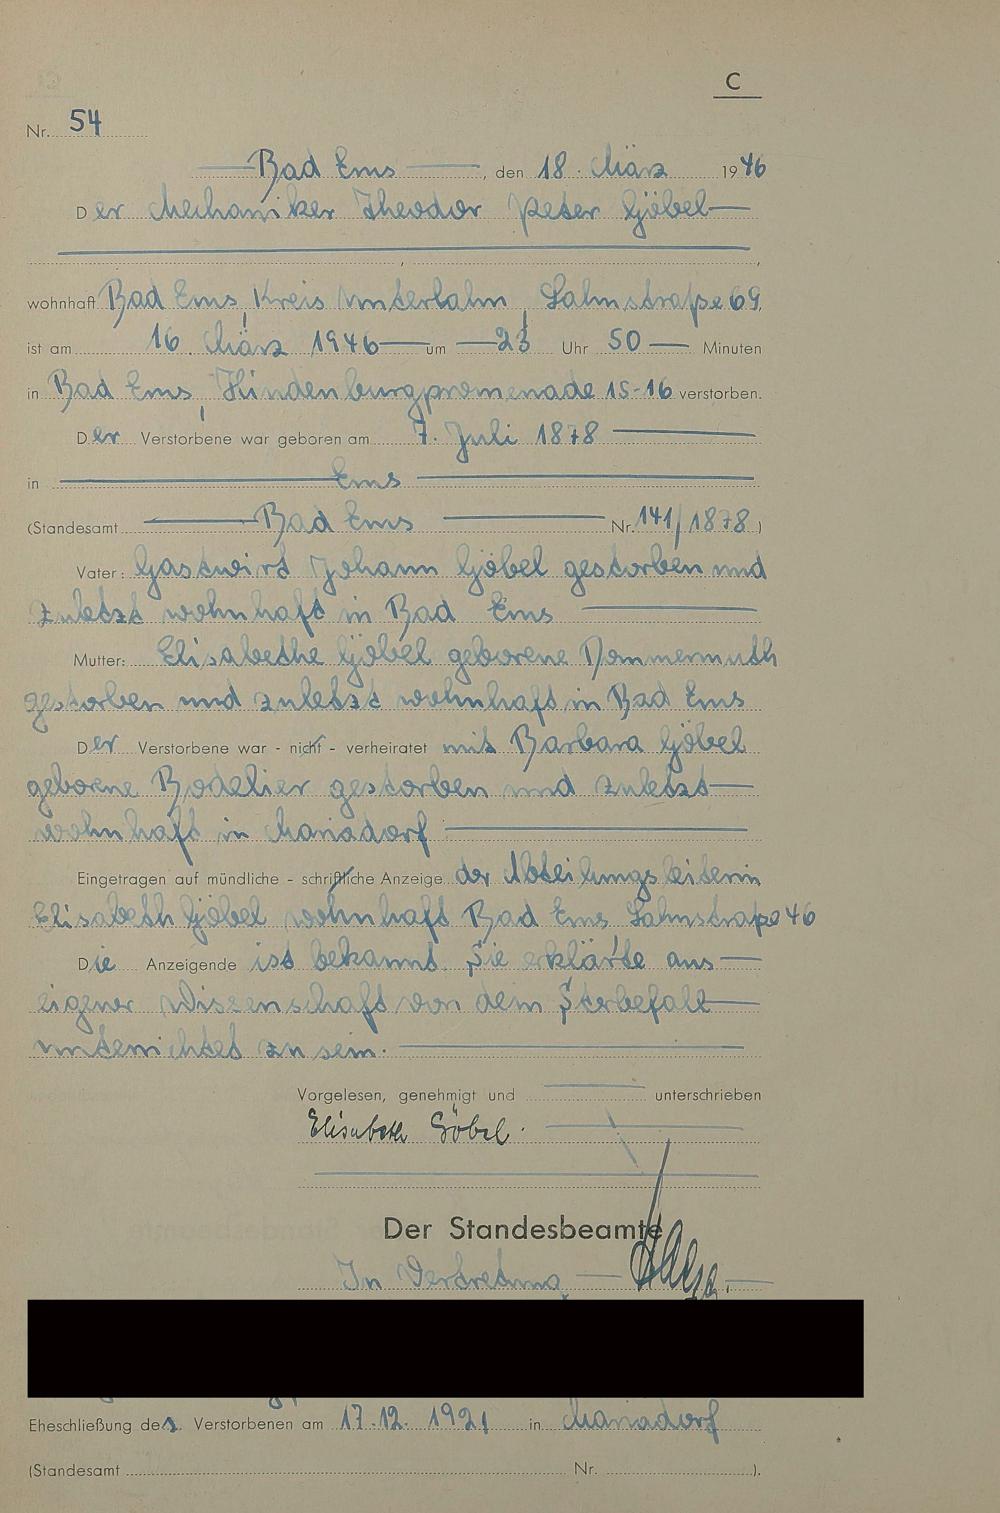 C
Nr. 54
Bad Ems, den 18. März 1946
Der Mechaniker Theodor Peter Göbel
wohnhaft Bad Ems, Kreis Unterlahn, Lahnstraße 69,
ist am 16. März 1946 um 23 Uhr 50 Minuten
in Bad Ems, Hindenburgpromenade 15-16 verstorben.
Der Verstorbene war geboren am 7. Juli 1878
in Ems
(Standesamt Bad Ems Nr. 141/1878)
Vater: Gastwirt Johann Göbel gestorben und
zuletzt wohnhaft in Bad Ems
Mutter: Elisabethe Göbel geborene Dommermuth
gestorben und zuletzt wohnhaft in Bad Ems
Der Verstorbene war - nicht - verheiratet mit Barbara Göbel
geborne Bodelier gestorben und zuletzt
wohnhaft in Mariadorf
Eingetragen auf mündliche - schriftliche Anzeige der Abteilungsleiterin
Elisabeth Göbel wohnhaft Bad Ems Lahnstraße 46
Die Anzeigende ist bekannt. Sie erklärte aus
eigener Wissenschaft von dem Sterbefall
unterrichtet zu sein.
Vorgelesen, genehmigt und unterschrieben
Elisabeth Göbel.
Der Standesbeamte
In Vertretung
Eheschließung des Verstorbenen am 17.12.1921 in Mariadorf
(Standesamt Nr. ).